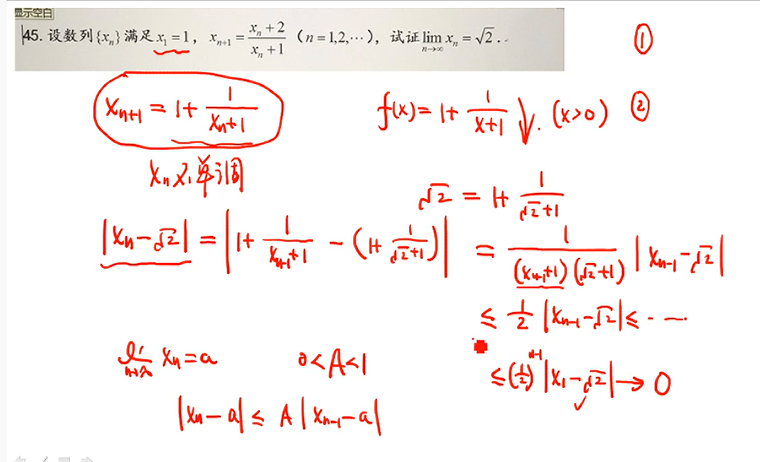 显示空白
45. 设数列{xₙ}满足x₁=1, xₙ₊₁=(xₙ+2)/(xₙ+1) (n=1,2,⋯), 试证lim_{n→∞} xₙ=√2.
①
xₙ₊₁ = 1+ 1/(xₙ+1)
f(x)=1+ 1/(x+1) ↓. (x>0) ②
xₙ 不单调
√2 = 1+ 1/(√2+1)
|xₙ-√2| = |1+ 1/(xₙ₋₁+1) - (1+ 1/(√2+1))| = 1/((xₙ₋₁+1)(√2+1)) |xₙ₋₁-√2|
≤ 1/2 |xₙ₋₁-√2| ≤ ⋯ ⋯
lim_{n→∞} xₙ=a 0<A<1
≤(1/2)ⁿ⁻¹ |x₁-√2| → 0
|xₙ-a| ≤ A |xₙ₋₁-a|